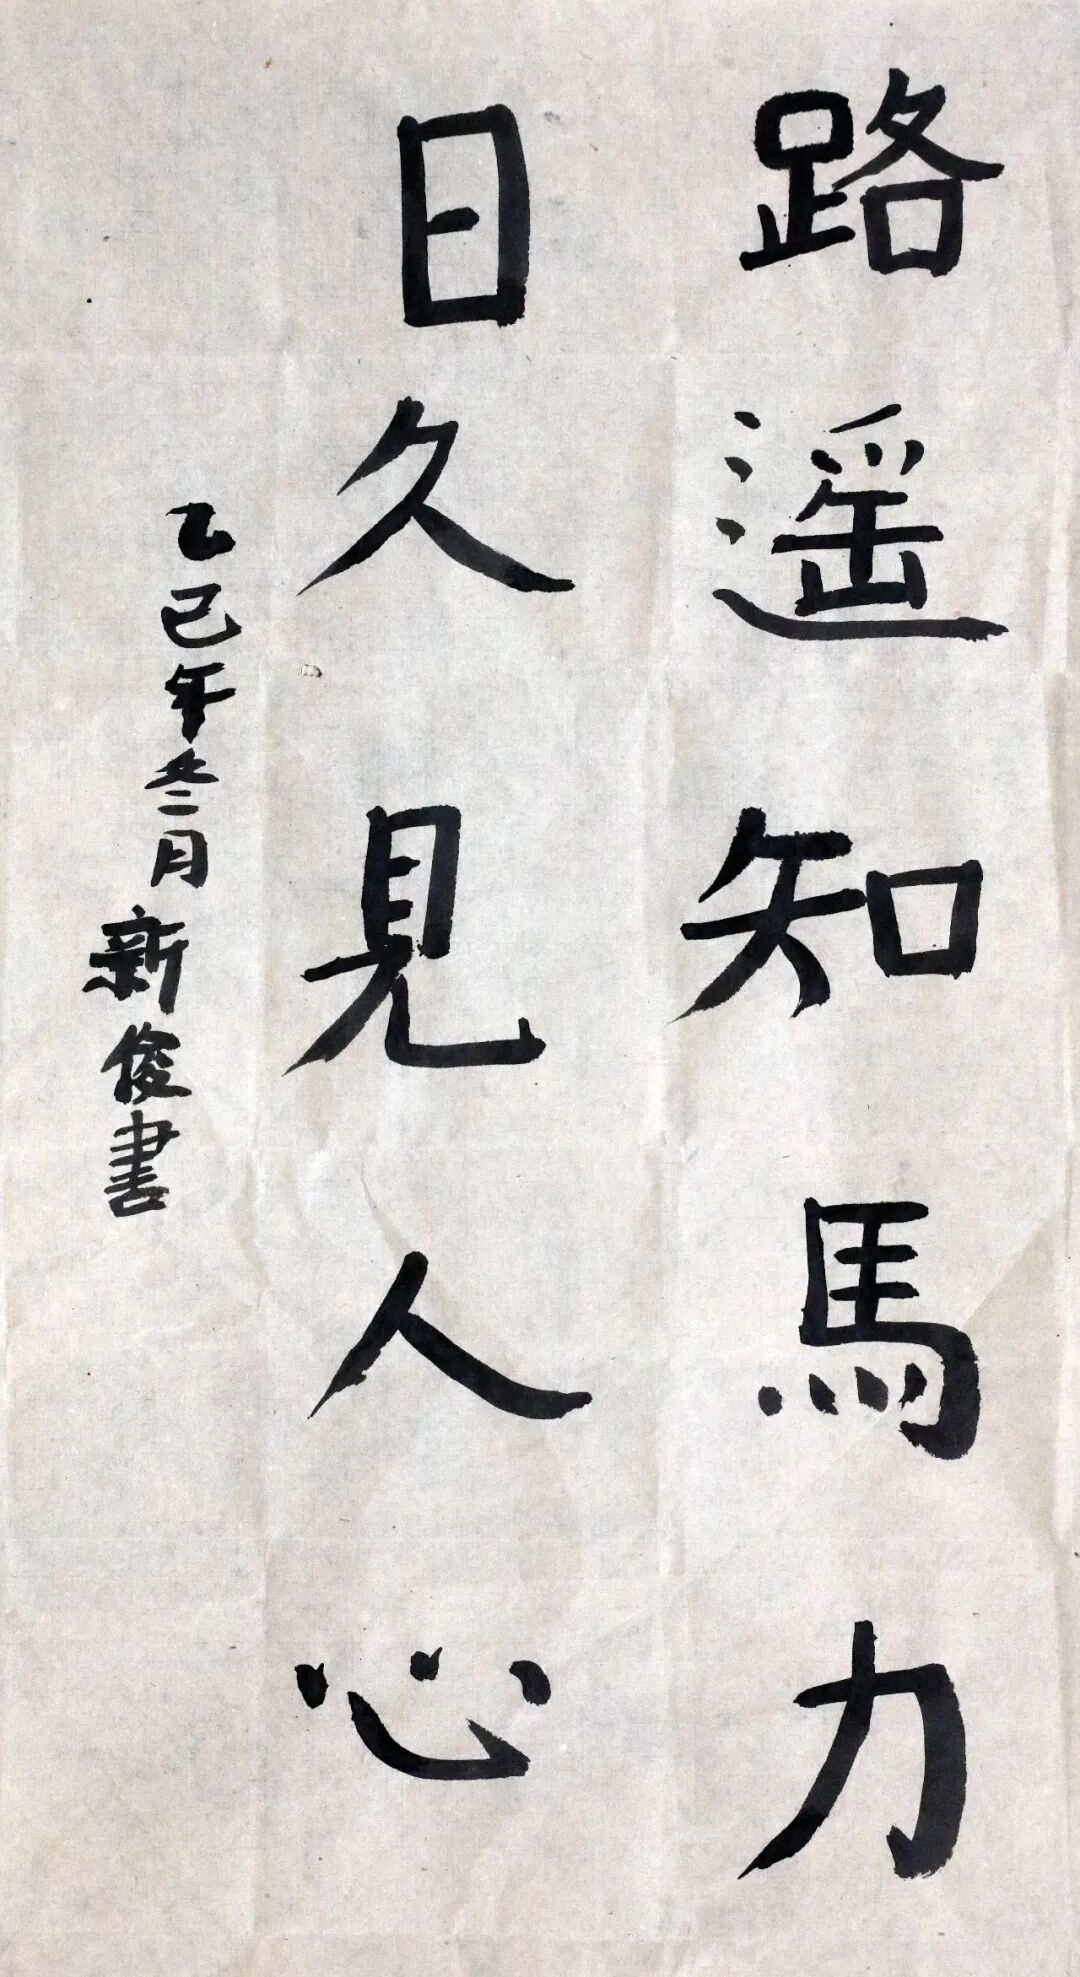 路遥知馬力
日久見人心
乙巳年冬月新俊書